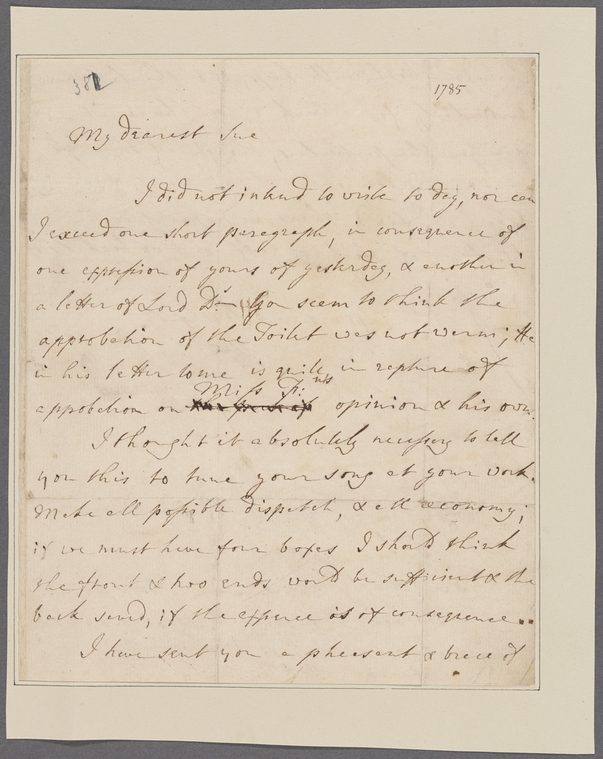 382
1785
My dearest Sue
I did not intend to write to day, nor can
I exceed one short paragraph, in consequence of
one expression of yours of yesterday, & another in
a letter of Lord D.s You seem to think the
approbation of the Toilet was not warm; He
in his letter to me is quite in rapture of
Miss F:ns
approbation on opinion & his own.
I thought it absolutely necessary to tell
you this to tune your song at your work.
Make all possible dispatch, & all œconomy;
if we must have four boxes I should think
the front & two ends would be sufficient & the
back saved, if the expence is of consequence..
I have sent you a pheasant & brace of